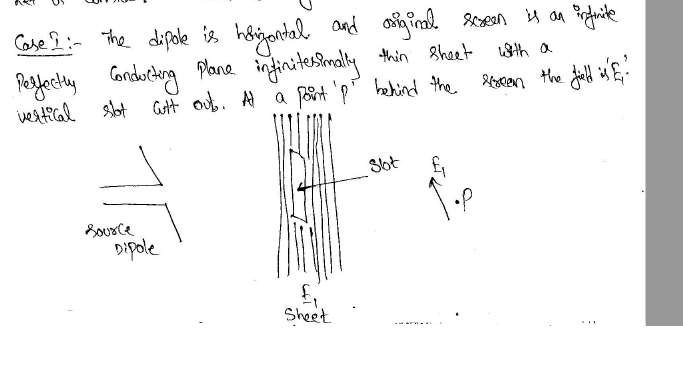 Case I :- The dipole is horizontal and original screen is an infinite
Perfectly Conducting Plane infinitesimally thin sheet with a
vertical slot cutt out. At a Point 'P' behind the screen the field is 'E₁'.
Slot
E₁
.P
Source
Dipole
E₁
Sheet